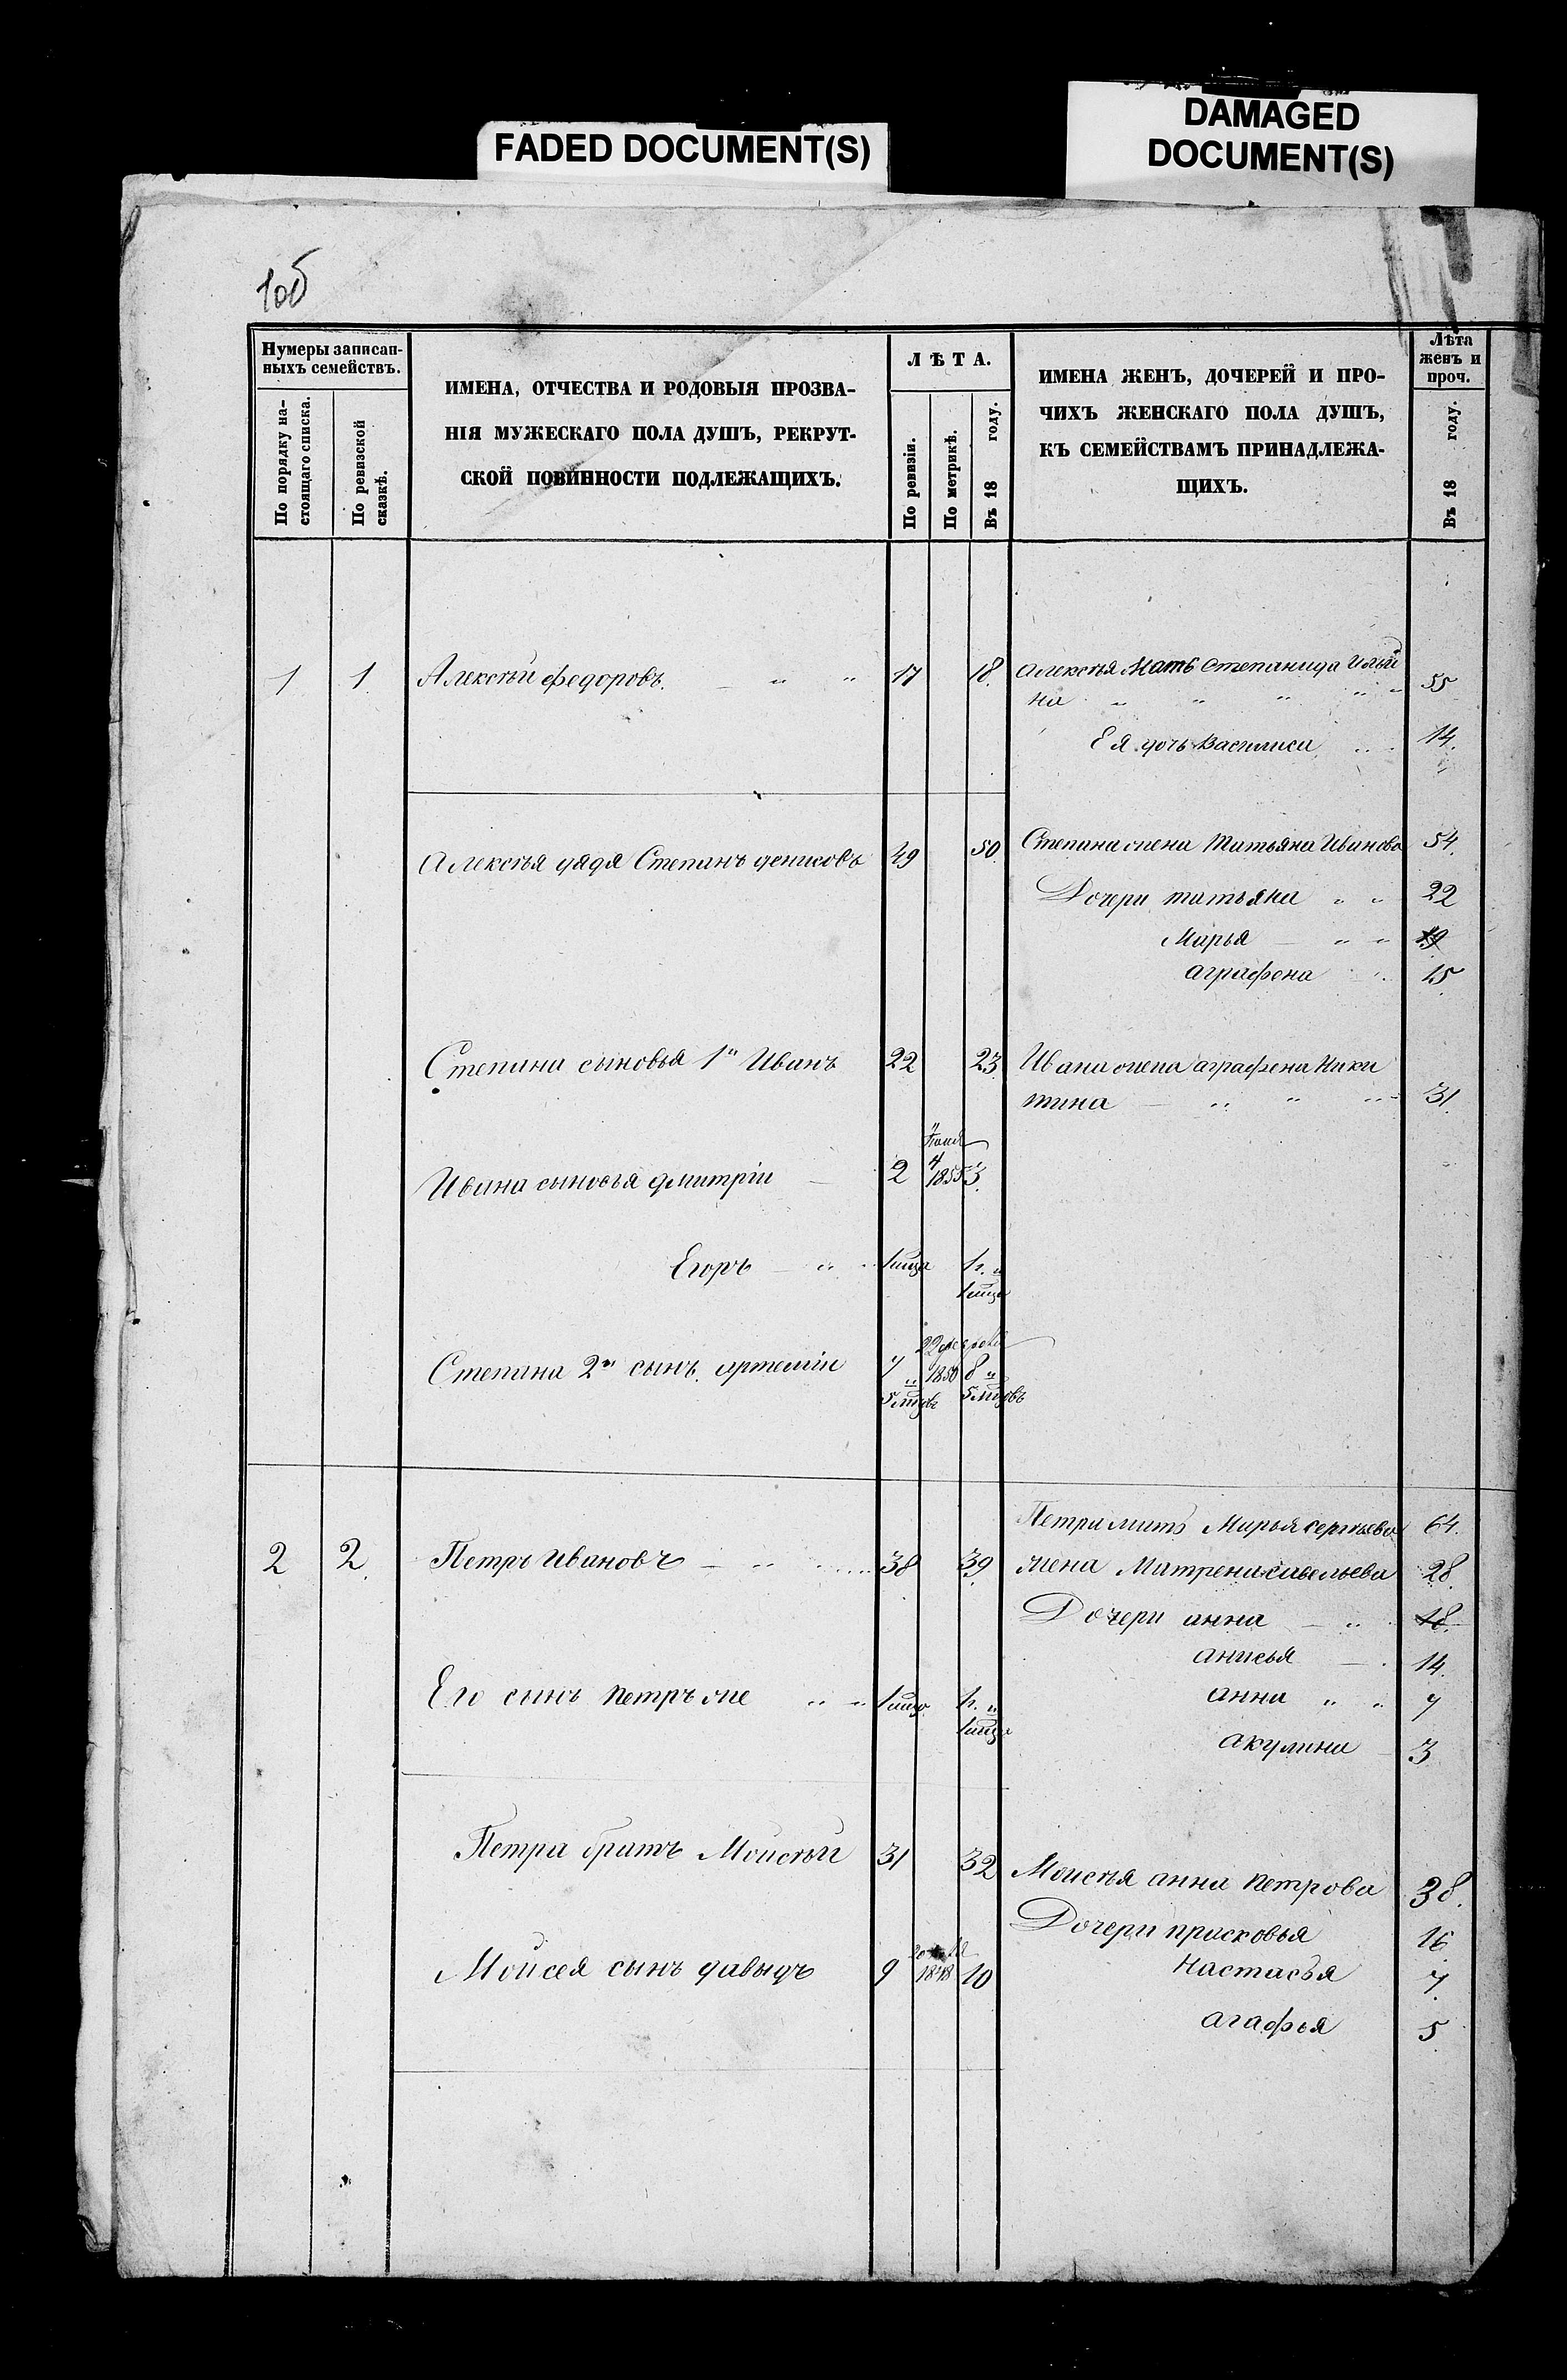 FADED DOCUMENT(S)
DAMAGED
DOCUMENT(S)
10об
Нумеры записан-
ныхъ семействъ.
По порядку на-
стоящаго списка.
По ревизской
сказкѣ.
ИМЕНА, ОТЧЕСТВА И РОДОВЫЯ ПРОЗВА-
НІЯ МУЖЕСКАГО ПОЛА ДУШЪ, РЕКРУТ-
СКОЙ ПОВИННОСТИ ПОДЛЕЖАЩИХЪ.
ЛѢТА.
По ревизіи.
По метрикѣ.
Въ 18 году.
ИМЕНА ЖЕНЪ, ДОЧЕРЕЙ И ПРО-
ЧИХЪ ЖЕНСКАГО ПОЛА ДУШЪ,
КЪ СЕМЕЙСТВАМЪ ПРИНАДЛЕЖА-
ЩИХЪ.
Лѣта
женъ и
проч.
Въ 18 году.
1 1. Алексѣй федоровъ. — " " 17 18. Алексѣя Мать Степанида Ильи
на " " " " " 55
Ея дочь Василиса 14.
Алексѣя дядя Степанъ денисовъ 49 50 Степана жена Татьяна Иванова 54.
Дочери татьяна " " 22
Марья — " " 19
аграфена 15
Степана сыновья 1й Иванъ 22 23. Ивана жена аграфена Ники
тина — " " " 31.
Ивана сыновья дмитріи — 2 4 1855 3.
Егоръ — " 1 мцъ 1 г. "
1 мцъ
Степана 2й сынъ артеміи 7 " 22 февраля 1850 8 "
5 мцовъ 5 мцовъ
Петра мать Марья сергѣева 64.
2 2. Петръ Ивановъ — " 38 39. жена Матрена савельева 28.
Дочери анна — " 18.
анисья — 14.
Его сынъ петръ же " " 1 мцъ 1 г. " анна " " 7
1 мцъ
акулина 3
Петра братъ Моисѣй 31 32 Моисѣя анна петрова 38.
Дочери прасковья 16
Моисея сынъ давыдъ 9 1848 10 Настасья 7.
агафья 5.